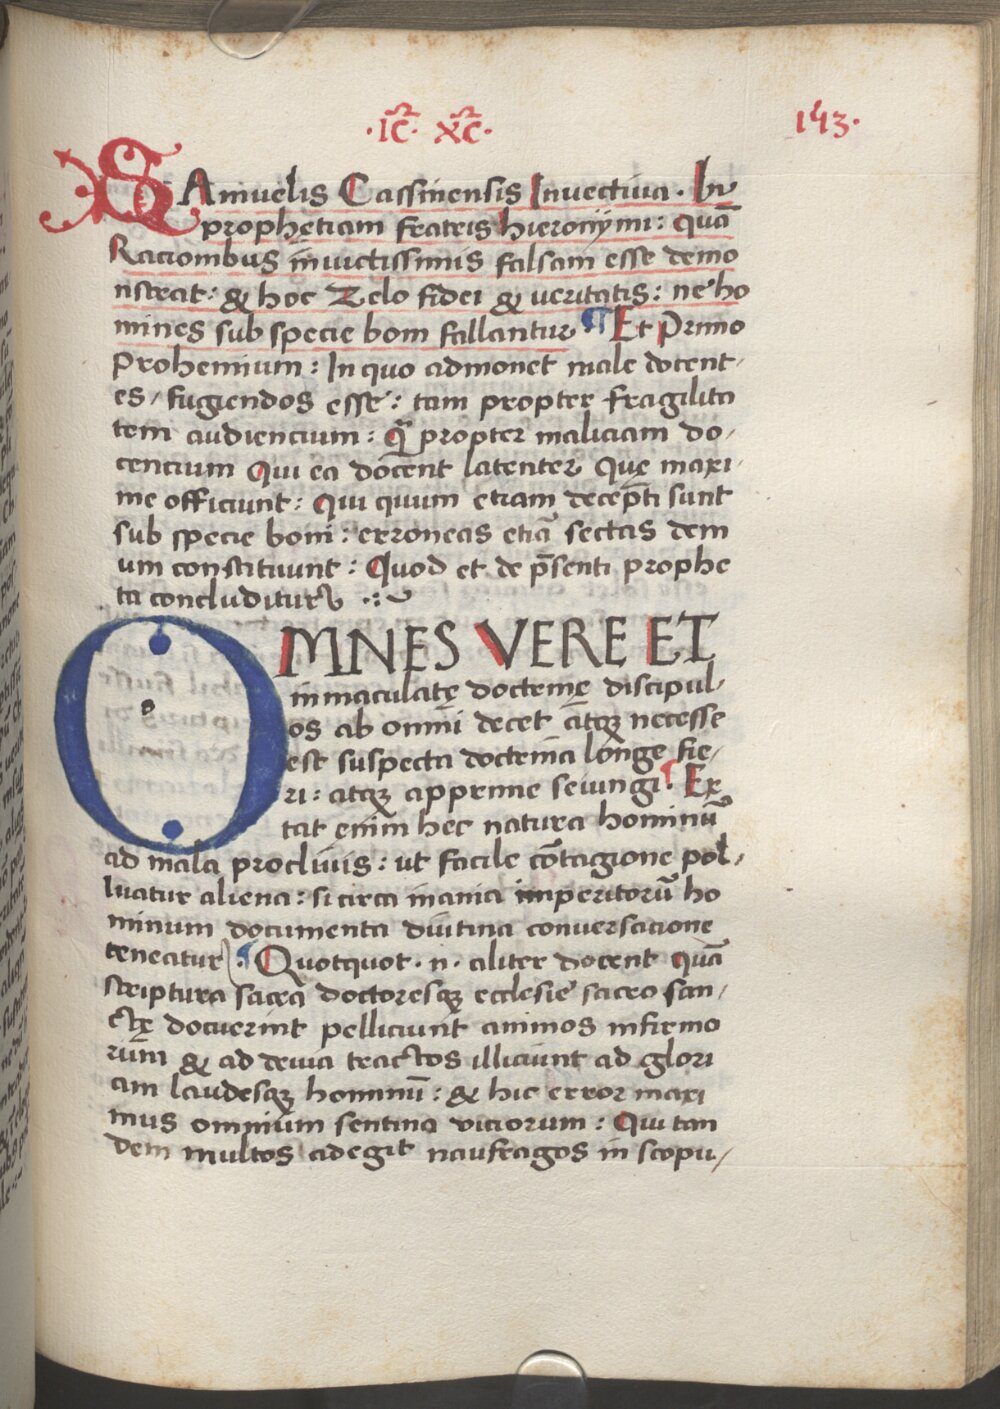 ·IC· XC·
143·
SAmuelis Cassinensis Inuectiua · In
prophetiam fratris hieronymi : quā
Racionibus inuictissimis falsam esse demo
nstrat : & hoc Zelo fidei & ueritatis : ne ho
mines sub specie boni fallantur ¶ Et Primo
Prohemium : In quo admonet male docent-
es / fugiendos esse : tam propter fragilita
tem audiencium : qꝫ propter maliciam do-
cencium Qui ea docent latenter Quę maxi-
me officiunt : Qui quum etiam decepti sunt
sub specie boni : erroneas etiā sectas dem
um constituunt : Quod et de p̄senti prophe
ta concluditur
OMNES VERE ET
inmaculatę doctrinę discipul-
os ab omni decet atqꝫ necesse
est suspecta doctrina longe fie-
ri : atqꝫ apprime seiungi. Ex
tat enim hec natura hominū
ad mala procliuis : ut facile cōtagione pol-
luatur aliena : si circa inania imperitorū ho
minum documenta diutina conuersacione
teneatur ¶ Quotquot · n · aliter docent quā
scriptura sacra doctoresqꝫ ecclesie sacro san-
ctę docuerint pelliciunt animos infirmo
rum & ad deuia tractos illiciunt ad glori
am laudesqꝫ hominū : & hic error maxi
mus omnium sentina viciorum : Qui tan
dem multos adegit naufragos in scopu-